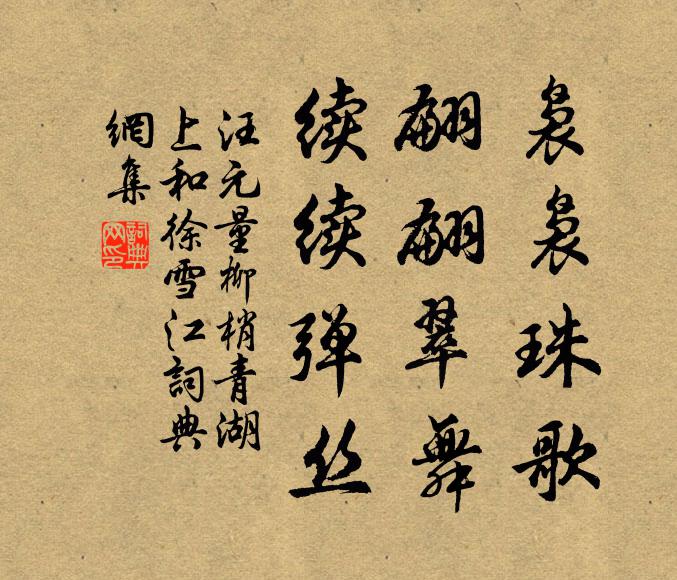 袅袅珠歌
翩翩翠舞
续续弹丝
汪元量柳梢青湖
上和徐雪江词典
網集
詞典網印